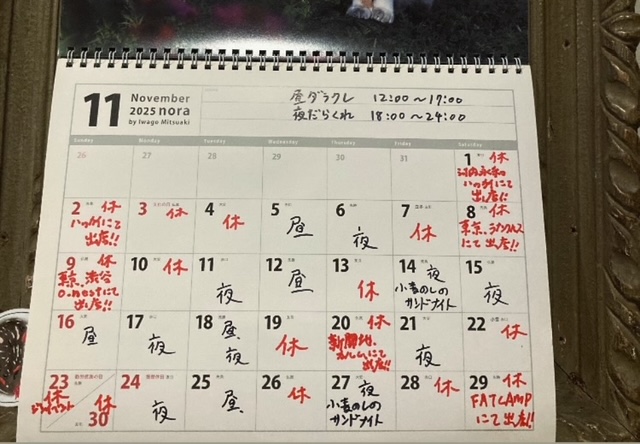 11
November
2025 nora
by Iwago Mitsuaki
昼ダラクレ 12:00〜17:00
夜だらくれ 18:00〜24:00
Sunday Monday Tuesday Wednesday Thursday Friday Saturday
26 27 28 29 30 31
1 休
にて
出店!!
2 休
にて
出店!!
3 休
4 休
5 昼
6 夜
7 休
8 休
東京、
にて出店!!
9 休
東京、渋谷
にて
出店!!
10 休
11 夜
12 昼
13 休
14 夜
小麦のしの
サンドナイト
15 夜
16 昼
17 夜
18 昼、
夜
19 休
20 休
新開地、
にて
出店!!
21 夜
22 休
23 休
30 休
24 夜
25 昼
26 休
27 夜
小麦のしの
サンドナイト
28 休
29 休
FATCAMP
にて出店!!